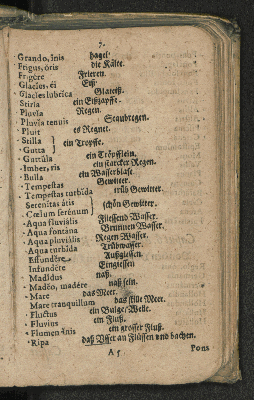 7.
Grando, ĭnis hagel.
Frigus, ŏris die Kälte.
Frigĕre Frieren.
Glacĭes, ēi Eyß.
Glacĭes lubrĭca Glateiß.
Stirĭa ein Eißzapffe.
Pluvĭa Regen.
Pluvĭa tenuis Staubregen.
Pluit es Regnet.
Stilla } ein Tropffe.
Gutta }
Guttŭla ein Tröpfflein.
Imber, ris ein starcker Regen.
Bulla ein Wasserblase.
Tempestas Gewitter.
Tempestas turbĭda trüb Gewitter.
Serenĭtas ūtis } schön Gewitter.
Cœlum serēnum }
Aqua fluviālis Fliessend Wasser.
Aqua fontāna Brunnen Wasser.
Aqua pluviālis Regen Wasser.
Aqua turbĭda Trübwasser.
Effundĕre Außgiessen.
Infundĕre Eingiessen
Madĭdus naß.
Madĕo, madēre naß sein.
Mare das Meer.
Mare tranquillum das stille Meer.
Fluctus ein Bulge/Welle.
Fluvius ein Fluß.
Flumen ĭnis ein grosser Fluß.
Ripa daß Vffer an Flüssen und bachen.
A5 Pons